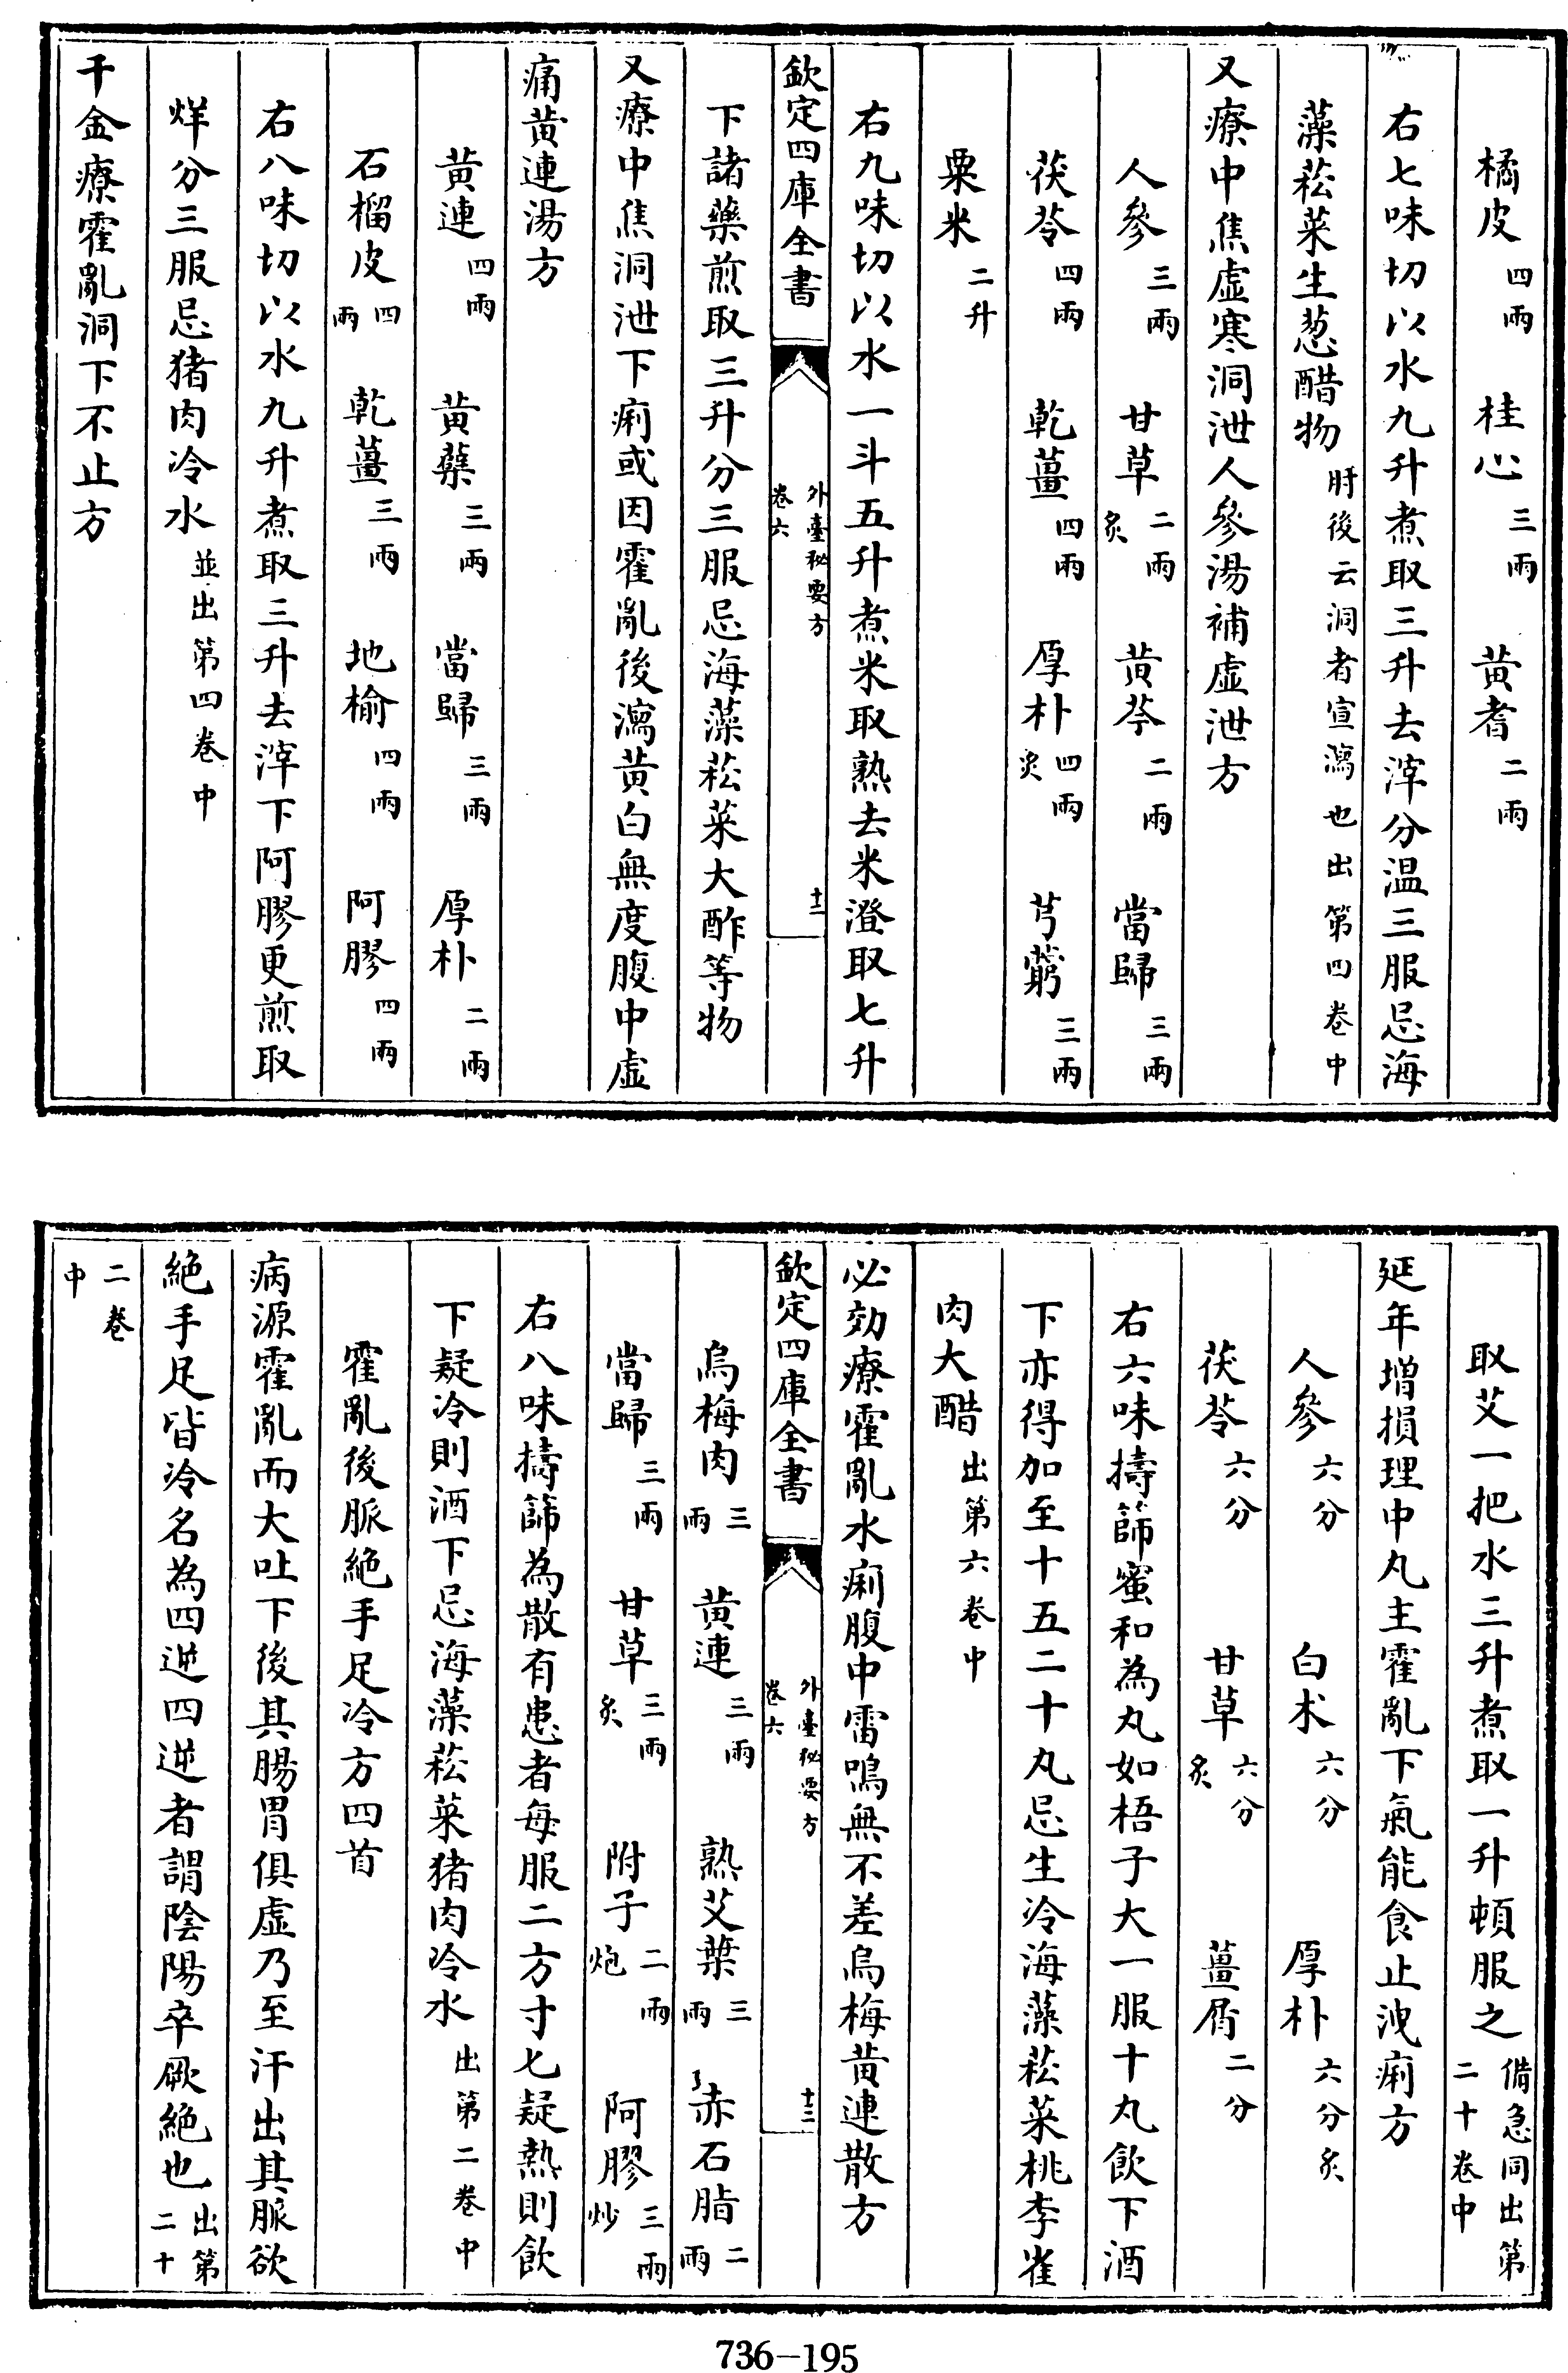 橘皮四兩　桂心三兩　黄耆二兩
右七味切以水九升煮取三升去滓分温三服忌海
藻菘菜生葱醋物肘後云洞者宣瀉也出第四卷中
又療中焦虚寒洞泄人參湯補虚泄方
人參三兩　甘草二兩炙　黄芩二兩　當歸三兩
茯苓四兩　乾薑四兩　厚朴四兩炙　芎藭三兩
粟米二升
右九味切以水一斗五升煮米取熟去米澄取七升
欽定四庫全書　外臺秘要方卷六　十二
下諸藥煎取三升分三服忌海藻菘菜大酢等物
又療中焦洞泄下痢或因霍亂後瀉黄白無度腹中虚
痛黄連湯方
黄連四兩　黄蘗三兩　當歸三兩　厚朴二兩
石榴皮四兩　乾薑三兩　地榆四兩　阿膠四兩
右八味切以水九升煮取三升去滓下阿膠更煎取
烊分三服忌猪肉冷水並出第四卷中
千金療霍亂洞下不止方
取艾一把水三升煮取一升頓服之備急同出第二十卷中
延年增損理中丸主霍亂下氣能食止洩痢方
人參六分　白朮六分　厚朴六分炙
茯苓六分　甘草六分炙　薑屑二分
右六味擣篩蜜和為丸如梧子大一服十丸飲下酒
下亦得加至十五二十丸忌生冷海藻菘菜桃李雀
肉大醋出第六卷中
必効療霍亂水痢腹中雷鳴無不差烏梅黄連散方
欽定四庫全書　外臺秘要方卷六　十三
烏梅肉三兩　黄連三兩　熟艾葉三兩　赤石脂二兩
當歸三兩　甘草三兩炙　附子二兩炮　阿膠三兩炒
右八味擣篩為散有患者每服二方寸匕疑熱則飲
下疑冷則酒下忌海藻菘菜猪肉冷水出第二卷中
霍亂後脈絶手足冷方四首
病源霍亂而大吐下後其腸胃俱虚乃至汗出其脈欲
絶手足皆冷名為四逆四逆者謂陰陽卒厥絶也出第二十
二卷中
736-195